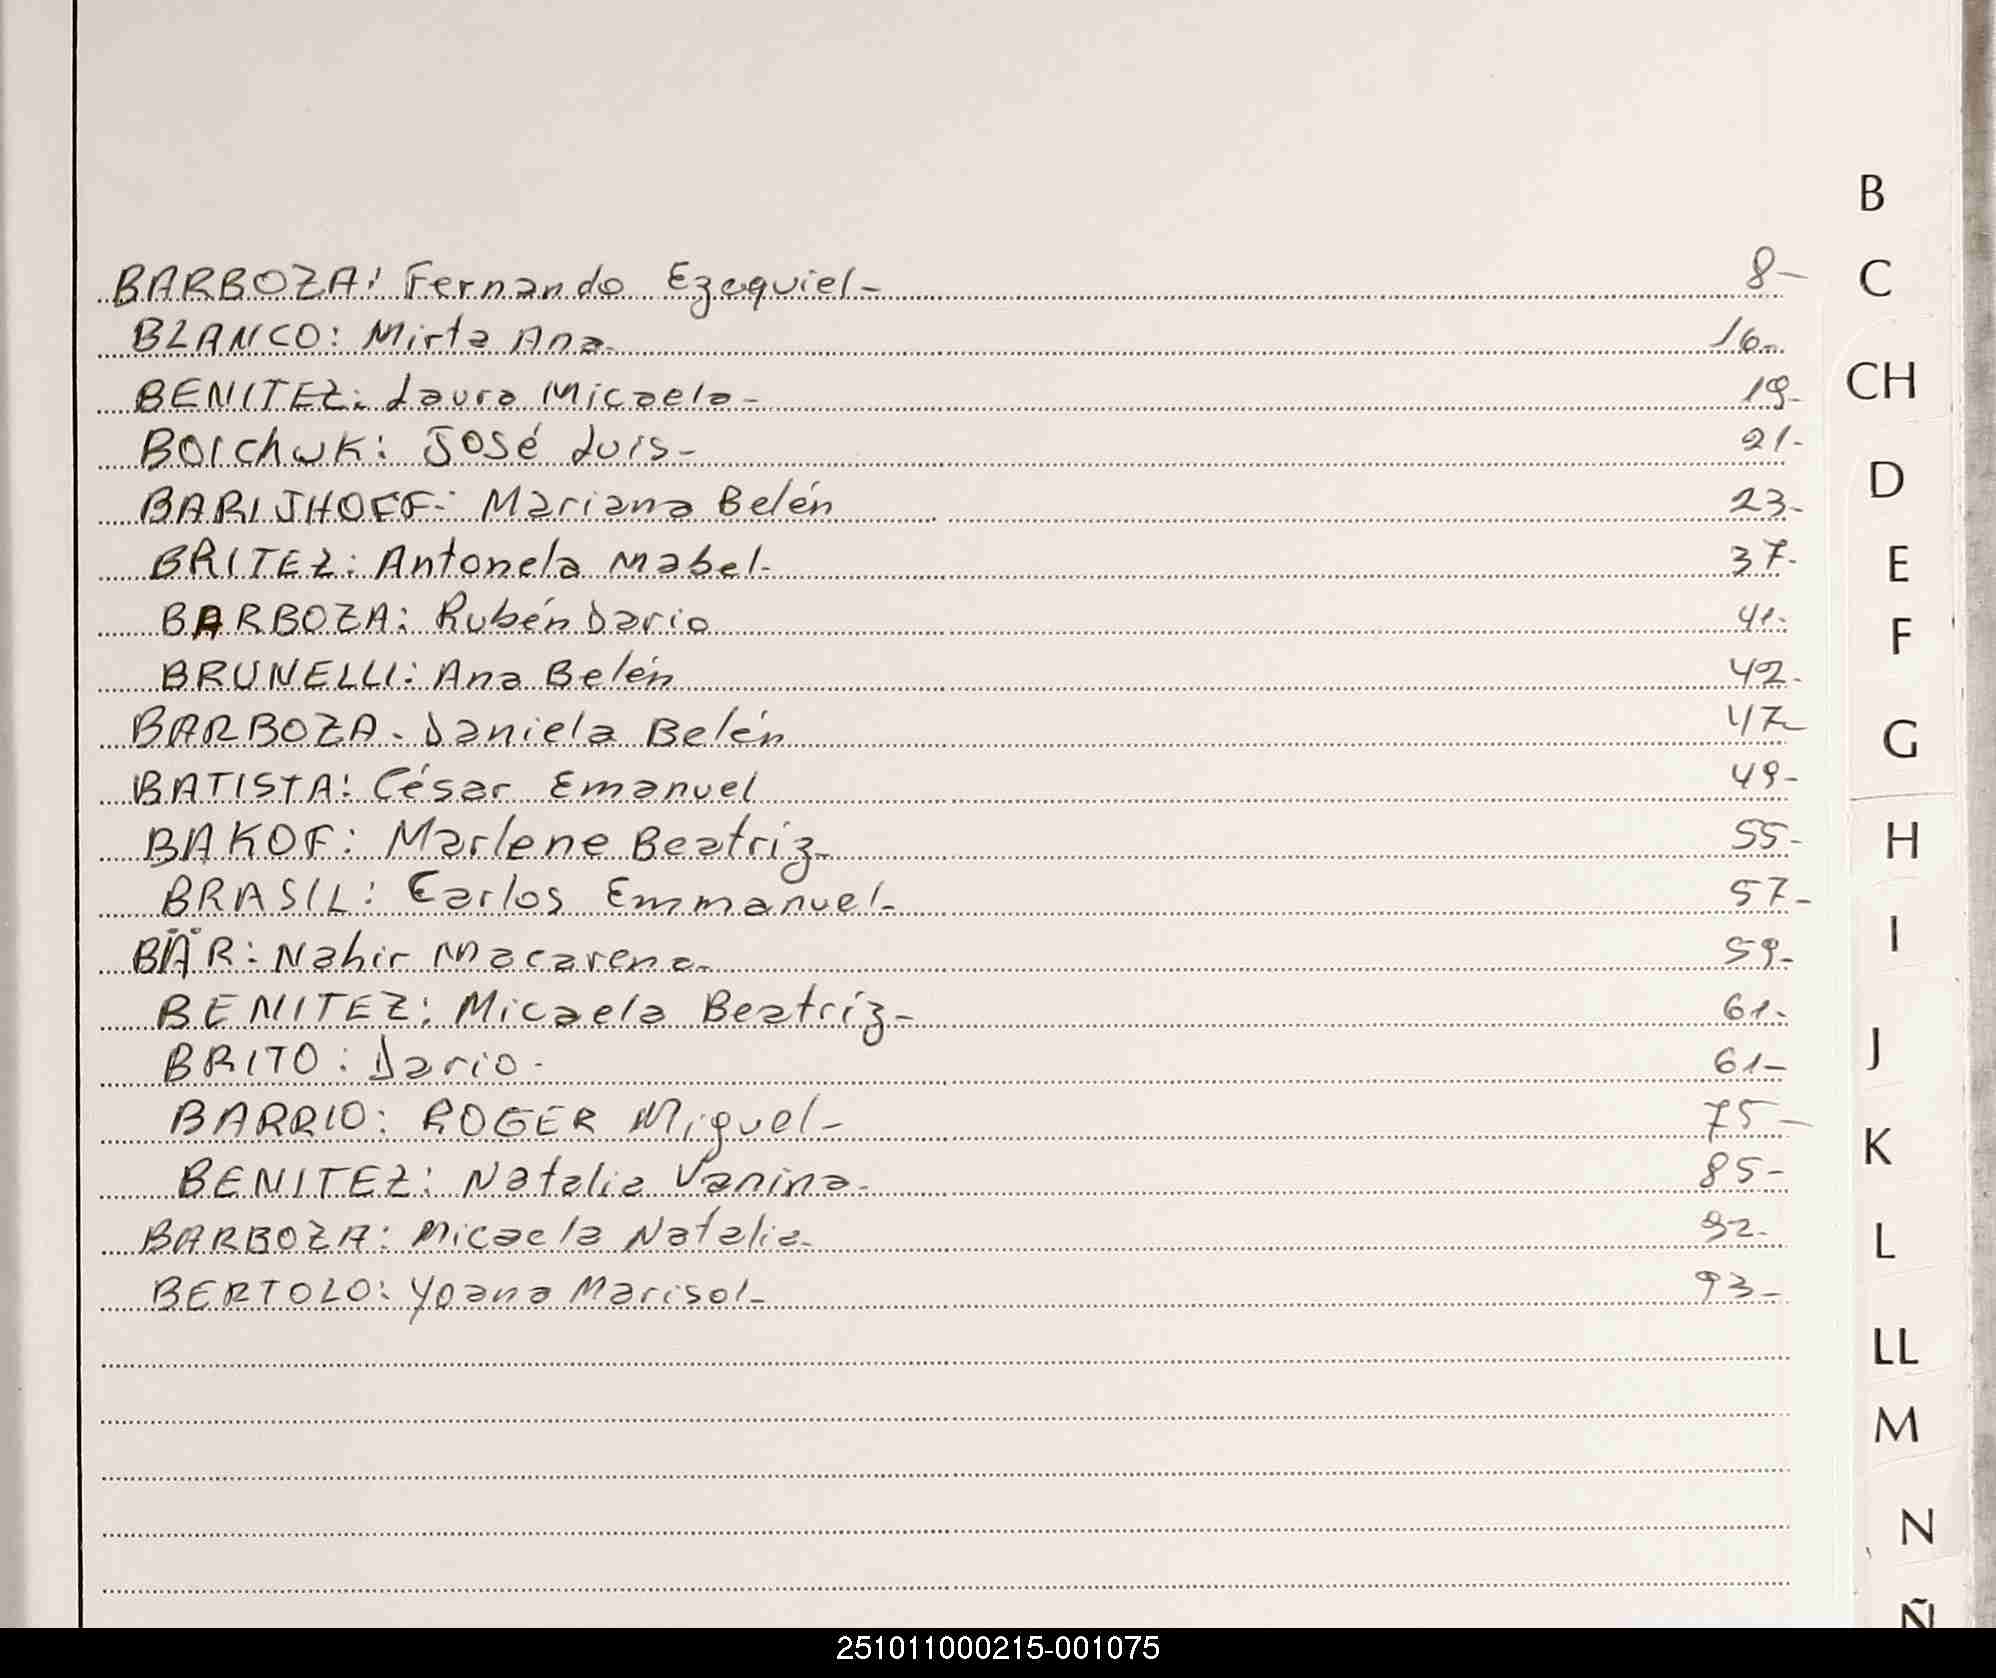 BARBOZA: Fernando Ezequiel- 8-
BLANCO: Mirta Ana- 16-
BENITEZ: Laura Micaela- 19-
BOICHUK: José Luis- 21-
BARIJHOFF: Mariana Belén 23-
BRITEZ: Antonela Mabel- 37-
BARBOZA: Rubén Dario 41-
BRUNELLI: Ana Belén 42-
BARBOZA- Daniela Belén 47-
BATISTA: César Emanuel 49-
BAKOF: Marlene Beatriz- 55-
BRASIL: Carlos Emmanuel- 57-
BÄR: Nahir Macarena- 59-
BENITEZ: Micaela Beatríz- 61-
BRITO: Dario- 61-
BARRIO: ROGER Miguel- 75-
BENITEZ: Natalia Vanina- 85-
BARBOZA: Micaela Natalia- 92-
BERTOLO: Yoana Marisol- 93-
B
C
CH
D
E
F
G
H
I
J
K
L
LL
M
N
Ñ
251011000215-001075